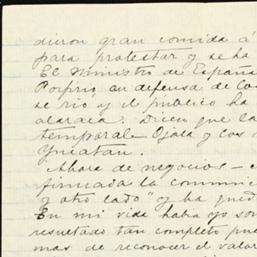 dieron gran comida á
para protestar y se ha
El Ministro de España
Porfirio, en defensa de Co
se rio y el público ha
alaraca. Dicen que la
temporal - Ojala y los
Yucatan.
Ahora de negocios -
firmada la
y otro lado" y ha
En mi vida habia yo
resultado tan completo
mas de reconocer el valor